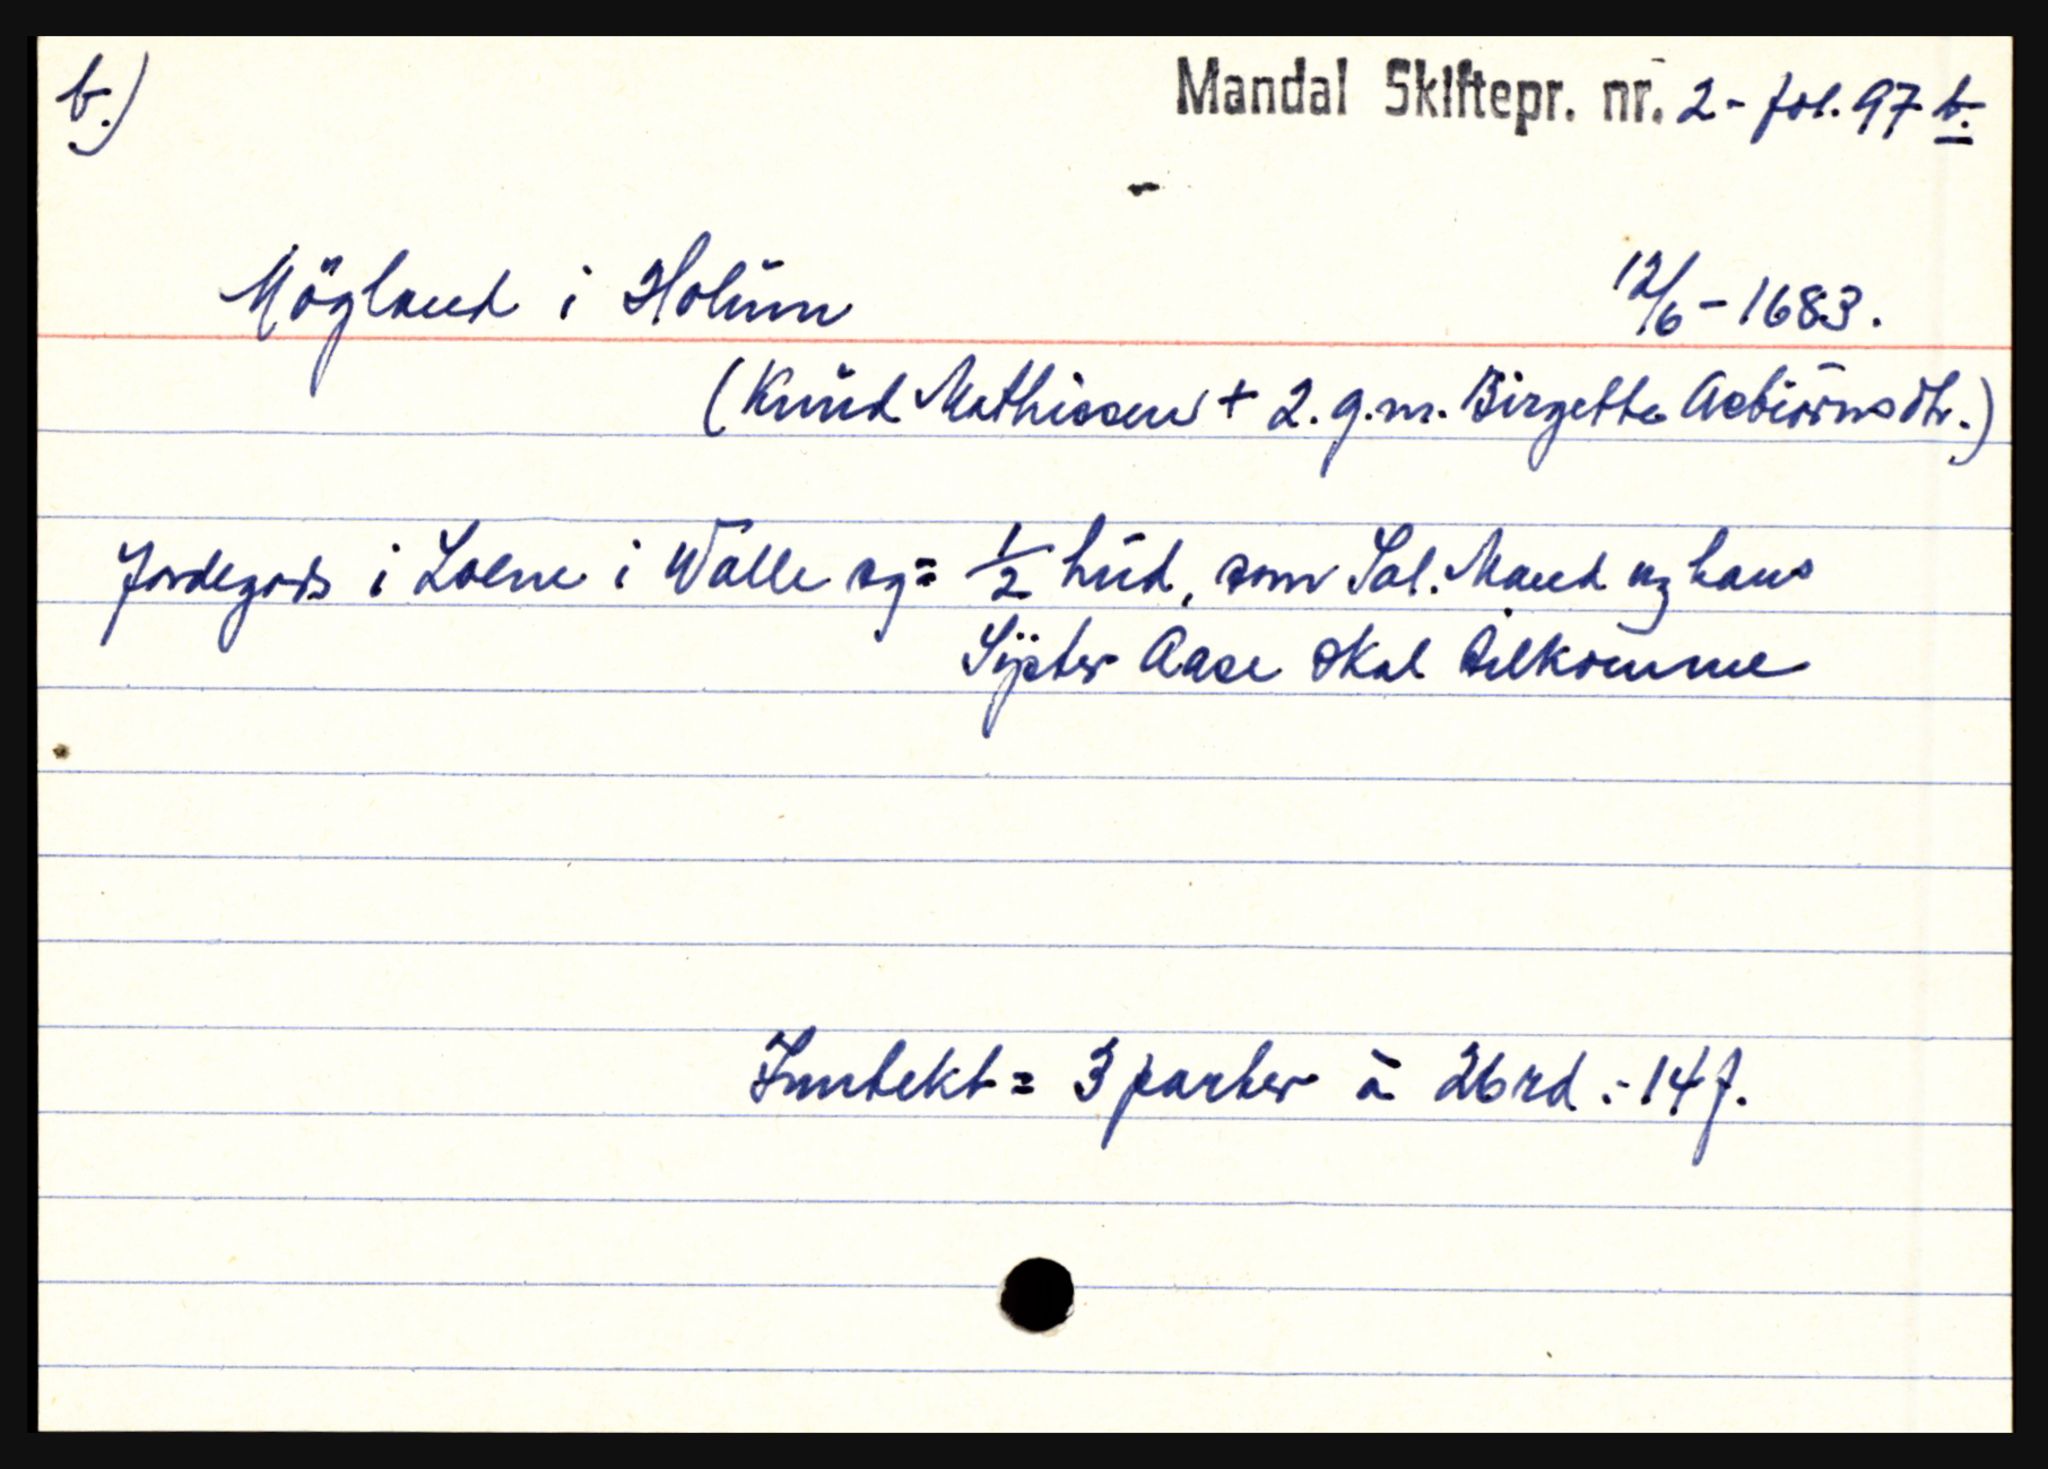 b.)
Mandal Skiftepr. nr. 2 - fol. 97 b.
Mögland i Holum 12/6 - 1683.
(Knud Mathissen + 2. g. m. Birgette Asbiörnsdtr.)
Jordegods i Loene i Walle sg = 1/2 hud, som Sal. Mand og hans
Sÿster Aase skal tilkomme
Inntekt = 3 parter à 26 rd :- 14 f.